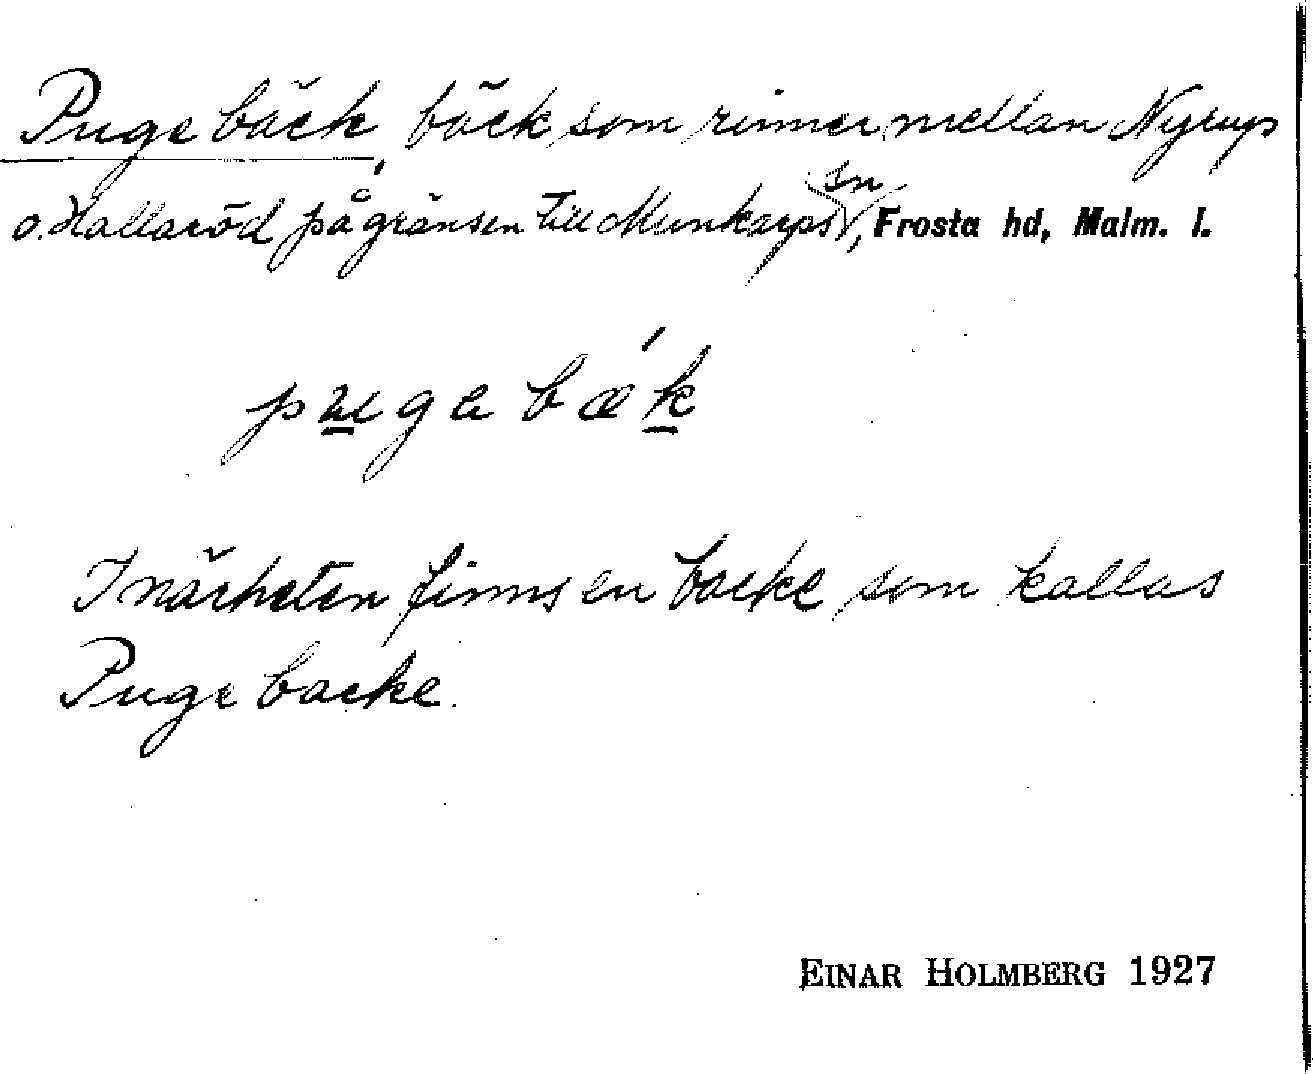 Puge bäck, bäck som rinner mellan Nyrup
o. Hallaröd på gränsen till Munkarps sn, Frosta hd, Malm. l.
pugabæ´k
I närheten finns en backe som kallas
Puge backe.
EINAR HOLMBERG 1927